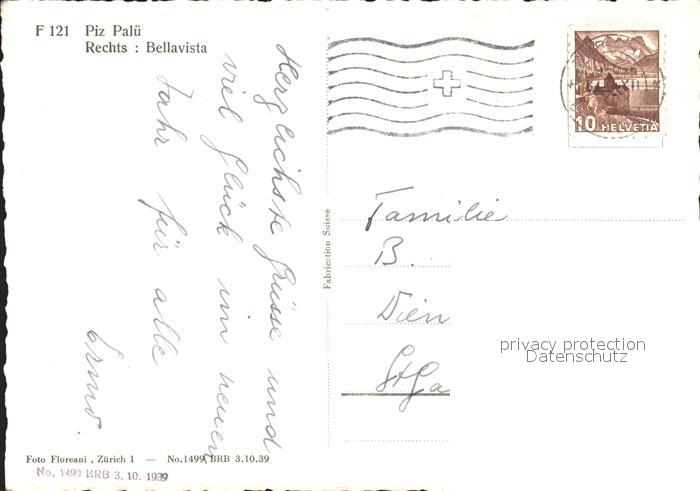 F 121 Piz Palü
Rechts : Bellavista
Herzlichste Grüsse und
viel Glück im neuen
Jahr für alle
Erno.
Fabrication Suisse
10 HELVETIA
XII
Familie
B.
Dien
StGa
privacy protection
Datenschutz
Foto Floreani , Zürich 1 — No.1499 BRB 3.10.39
No. 1499 BRB 3. 10. 1939